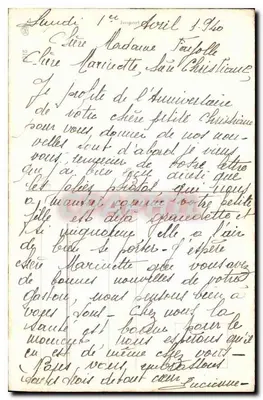 Lundi 1er Avril 1940
Chère Madame
Chère Marinette,
Je profite de l'Anniversaire
de votre chère petite Christiane
pour vous donner de nos nou-
velles tout d'abord je veux
vous remercier de votre lettre
que j'ai bien reçu ainsi que
les jolies photos qui nous
votre petite
fille est déjà grandette et
si mignonne elle a l'air
de bien se porter. J'espère
chère Marinette que vous avez
de bonnes nouvelles de votre
Gaston, nous pensons bien à
vous tous. Chez nous la
santé est bonne pour le
moment nous espérons qu'il
en est de même chez vous
vous
tous trois de tout cœur
Lucienne